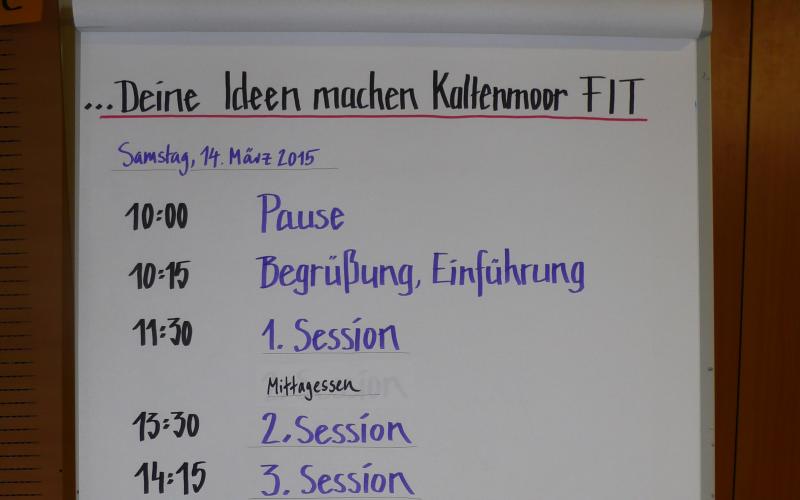 ...Deine Ideen machen Kaltenmoor FIT
Samstag, 14. März 2015
10:00 Pause
10:15 Begrüßung, Einführung
11:30 1. Session
Mittagessen
13:30 2. Session
14:15 3. Session